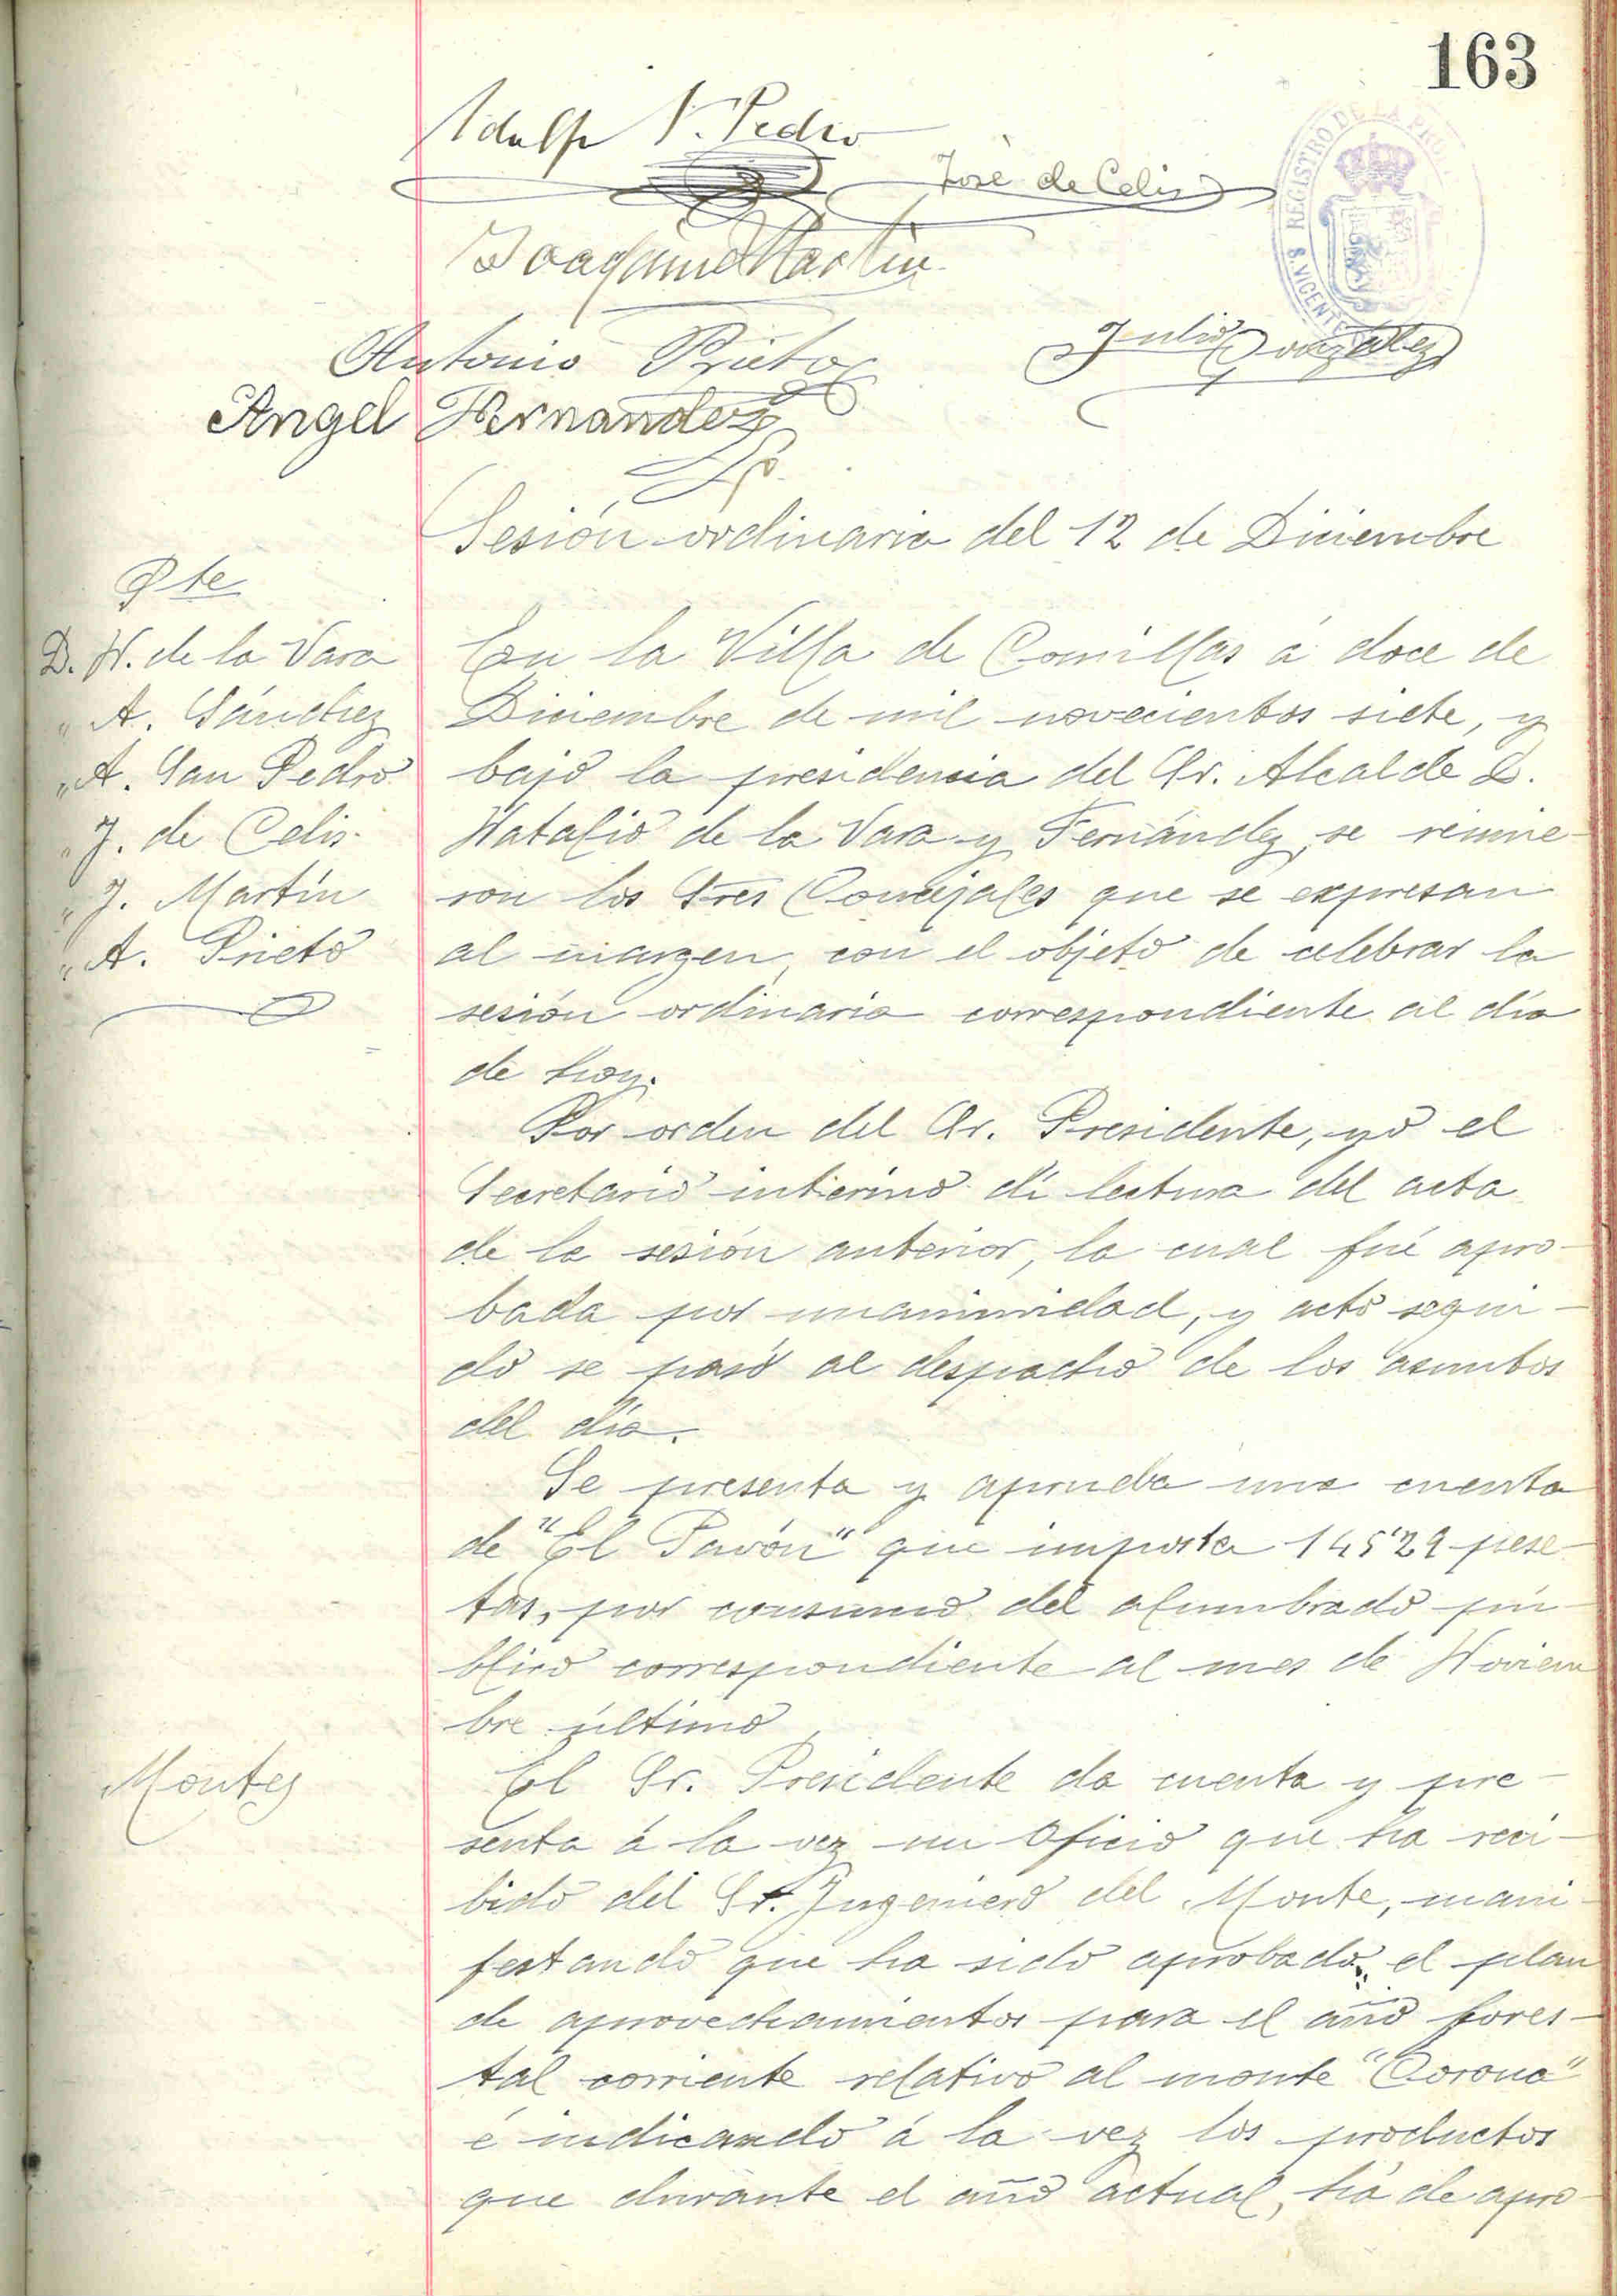 163
Adolfo S. Pedro
José de Celis
REGISTRO DE LA PRO
S. VICENTE
Joaquin Martin
Antonio Prieto
Julio Gonzalez
Angel Hernandez
Sesión ordinaria del 12 de Diciembre
Pte
D. N. de la Vara
" A. Sánchez
" A. San Pedro
" J. de Celis
" J. Martín
" A. Prieto
En la Villa de Comillas á doce de
Diciembre de mil novecientos siete, y
bajo la presidencia del Sr. Alcalde D.
Natalio de la Vara y Fernández, se reunie-
ron los Sres Concejales que se expresan
al margen, con el objeto de celebrar la
sesión ordinaria correspondiente al día
de hoy.
Por orden del Sr. Presidente, yo el
Secretario interino dí lectura del acta
de la sesión anterior, la cual fué apro-
bada por unanimidad, y acto segui-
do se pasó al despacho de los asuntos
del día.
Se presenta y aprueba una cuenta
de "El Pavón" que importa 145'29 pese-
tas, por consumo del alumbrado pú-
blico correspondiente al mes de Noviem
bre último
Montes
El Sr. Presidente da cuenta y pre-
senta á la vez un oficio que ha reci-
bido del Sr. Ingeniero del Monte, mani-
festando que ha sido aprobado el plan
de aprovechamientos para el año fores-
tal corriente relativo al monte "Corona"
é indicando á la vez los productos
que durante el año actual, há de apro-